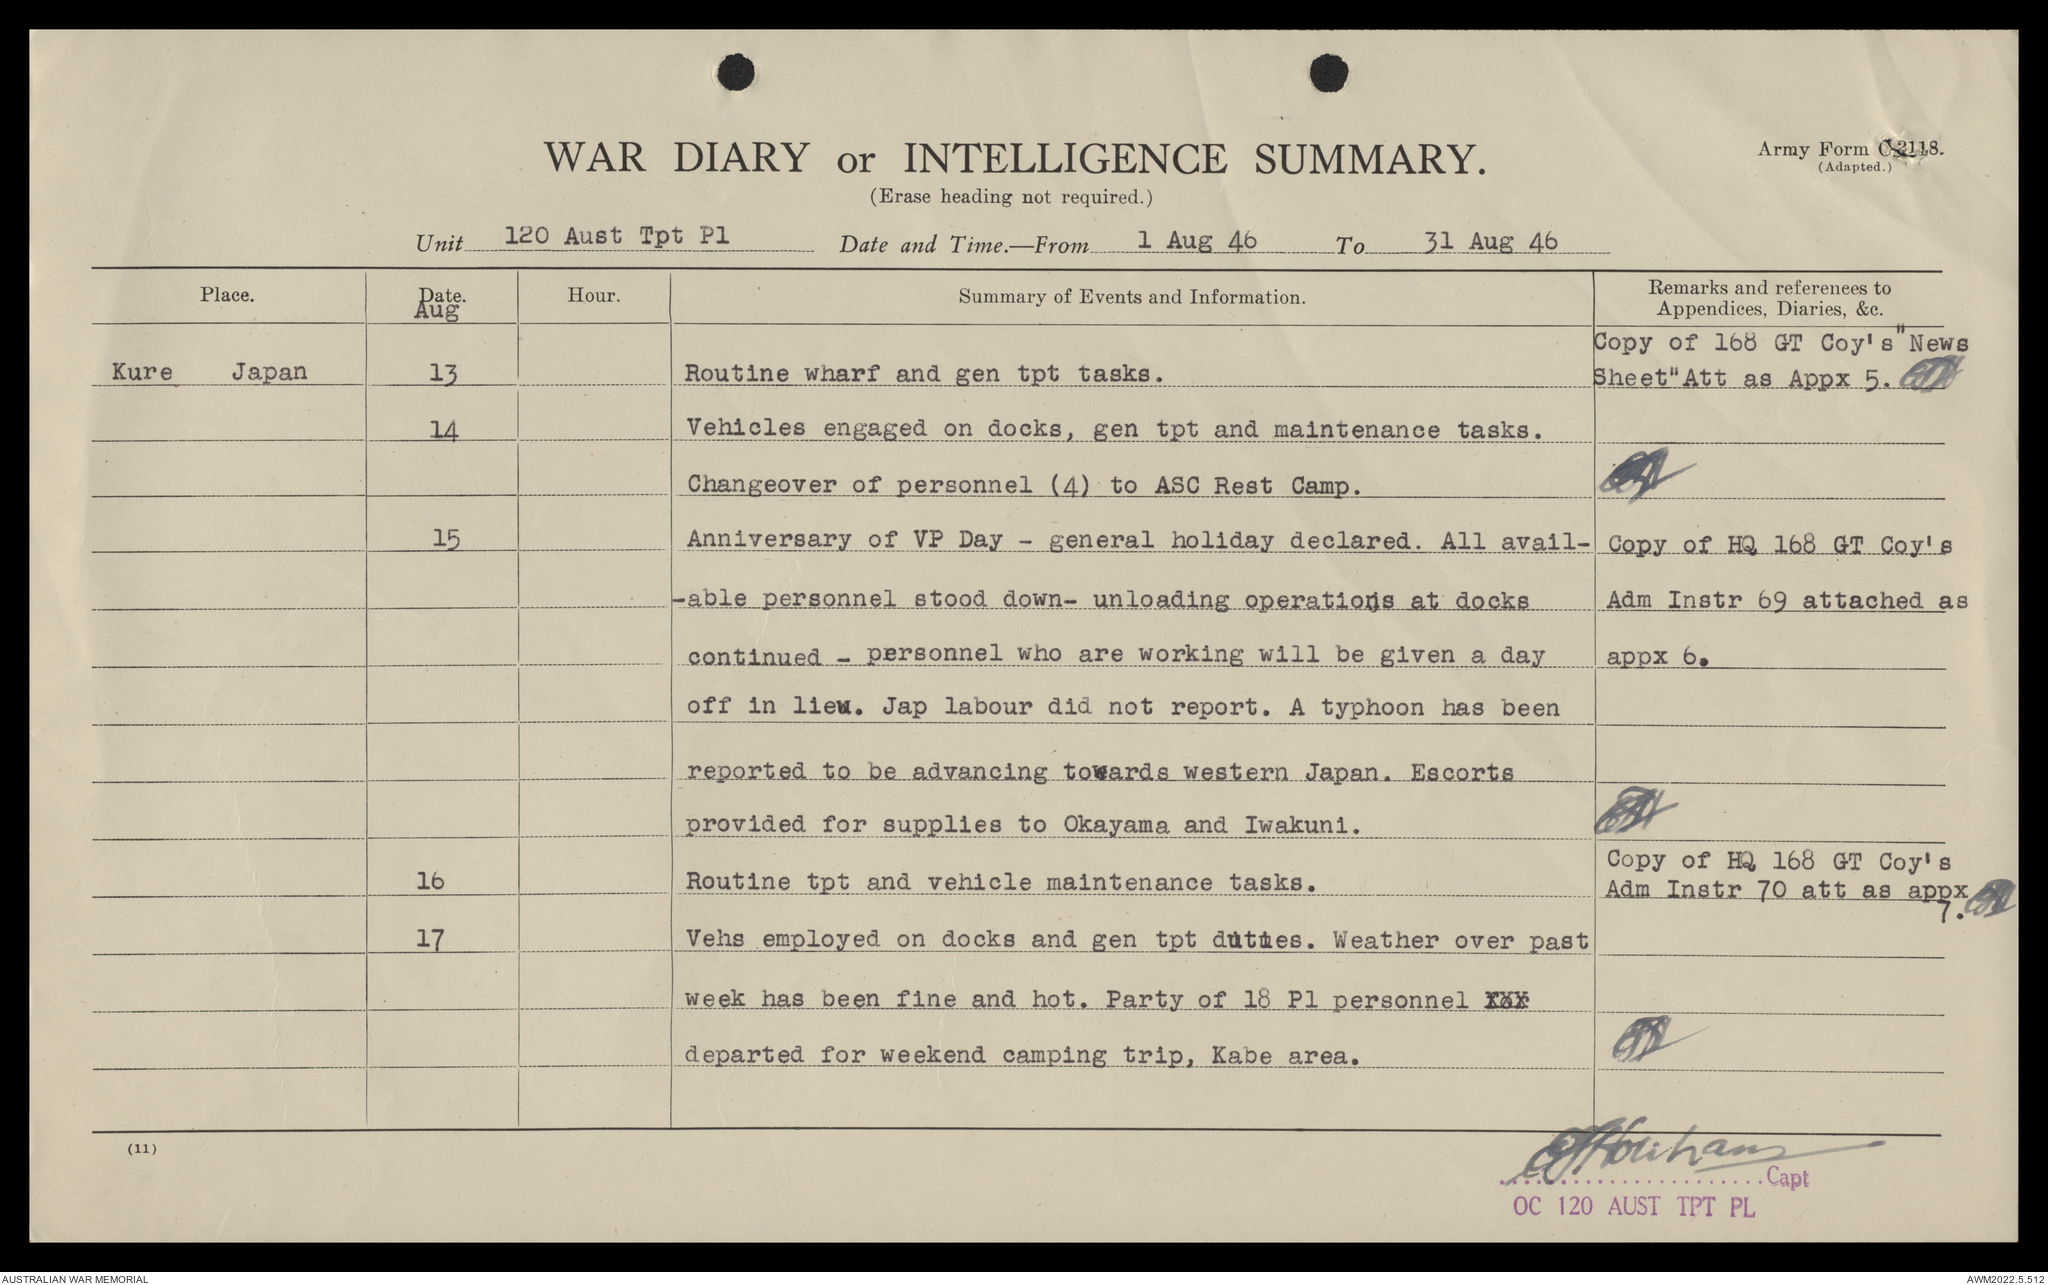 WAR DIARY or INTELLIGENCE SUMMARY.
Army Form C.2118.
(Adapted.)
(Erase heading not required.)
Unit 120 Aust Tpt Pl Date and Time.—From 1 Aug 46 To 31 Aug 46
Place. Date. Hour. Summary of Events and Information. Remarks and references to
Appendices, Diaries, &c.
Aug
Copy of 168 GT Coy's "News
Kure Japan 13 Routine wharf and gen tpt tasks. Sheet" Att as Appx 5.
14 Vehicles engaged on docks, gen tpt and maintenance tasks.
Changeover of personnel (4) to ASC Rest Camp.
15 Anniversary of VP Day - general holiday declared. All avail- Copy of HQ 168 GT Coy's
-able personnel stood down- unloading operations at docks Adm Instr 69 attached as
continued - personnel who are working will be given a day appx 6.
off in lieu. Jap labour did not report. A typhoon has been
reported to be advancing towards western Japan. Escorts
provided for supplies to Okayama and Iwakuni.
Copy of HQ 168 GT Coy's
16 Routine tpt and vehicle maintenance tasks. Adm Instr 70 att as appx
7.
17 Vehs employed on docks and gen tpt duties. Weather over past
week has been fine and hot. Party of 18 Pl personnel
departed for weekend camping trip, Kabe area.
(11)
Capt
OC 120 AUST TPT PL
AUSTRALIAN WAR MEMORIAL AWM2022.5.512